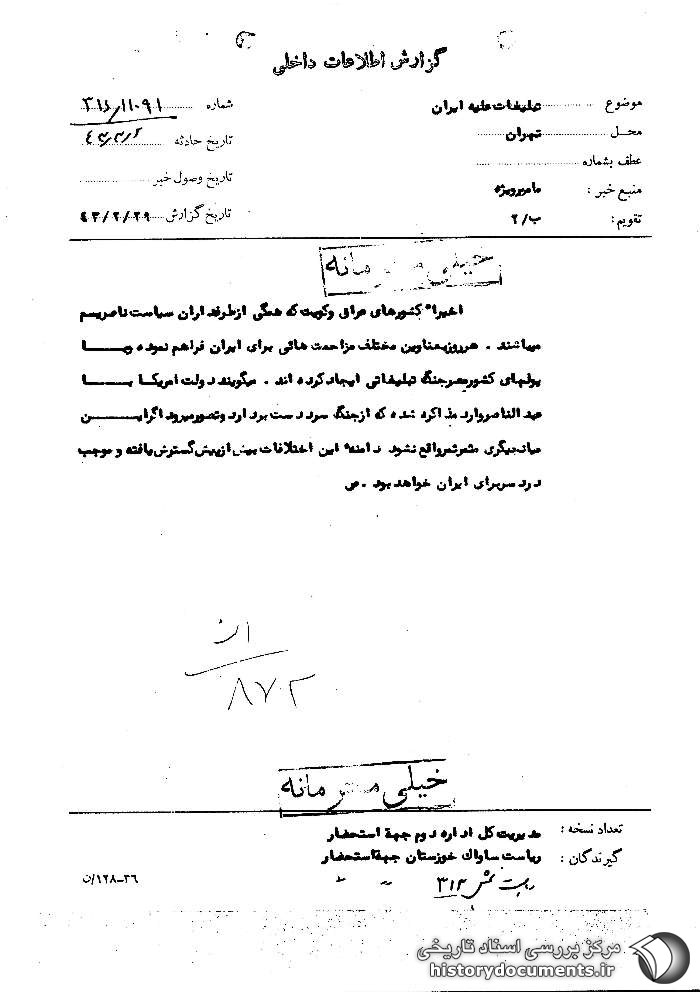 گزارش اطلاعات داخلی
موضوع تبلیغات علیه ایران
شماره ۳۱۶/۱۱۰۹۱
محل تهران
تاریخ حادثه
عطف بشماره
تاریخ وصول خبر
منبع خبر : مامورویژه
تاریخ گزارش ۴۳/۲/۲۹
تقویم : ب/۲
خیلی محرمانه
اخیرا" کشورهای عراق وکویت که همگی ازطرفداران سیاست ناصریسم
میباشند . هرروزبعناوین مختلف مزاحمت هائی برای ایران فراهم نموده وبا
پولهای کشورمصرجنگ تبلیغاتی ایجادکرده اند . میگویند دولت امریکا با
عبدالناصروارد مذاکره شده که ازجنگ سرد دست بردارد وتصورمیرود اگراین
میانجیگری مثمرثمرواقع نشود دامنه این اختلافات بیش ازپیش گسترش یافته و موجب
دردسربرای ایران خواهد بود . ص
۸۷۲
خیلی محرمانه
تعداد نسخه :
مدیریت کل اداره دوم جهة استحضار
گیرندگان : ریاست ساواك خوزستان جهةاستحضار
ریاست بخش ۳۱۲ " "
۳۶-۱۲۸/ن
مرکز بررسی اسناد تاریخی
historydocuments.ir